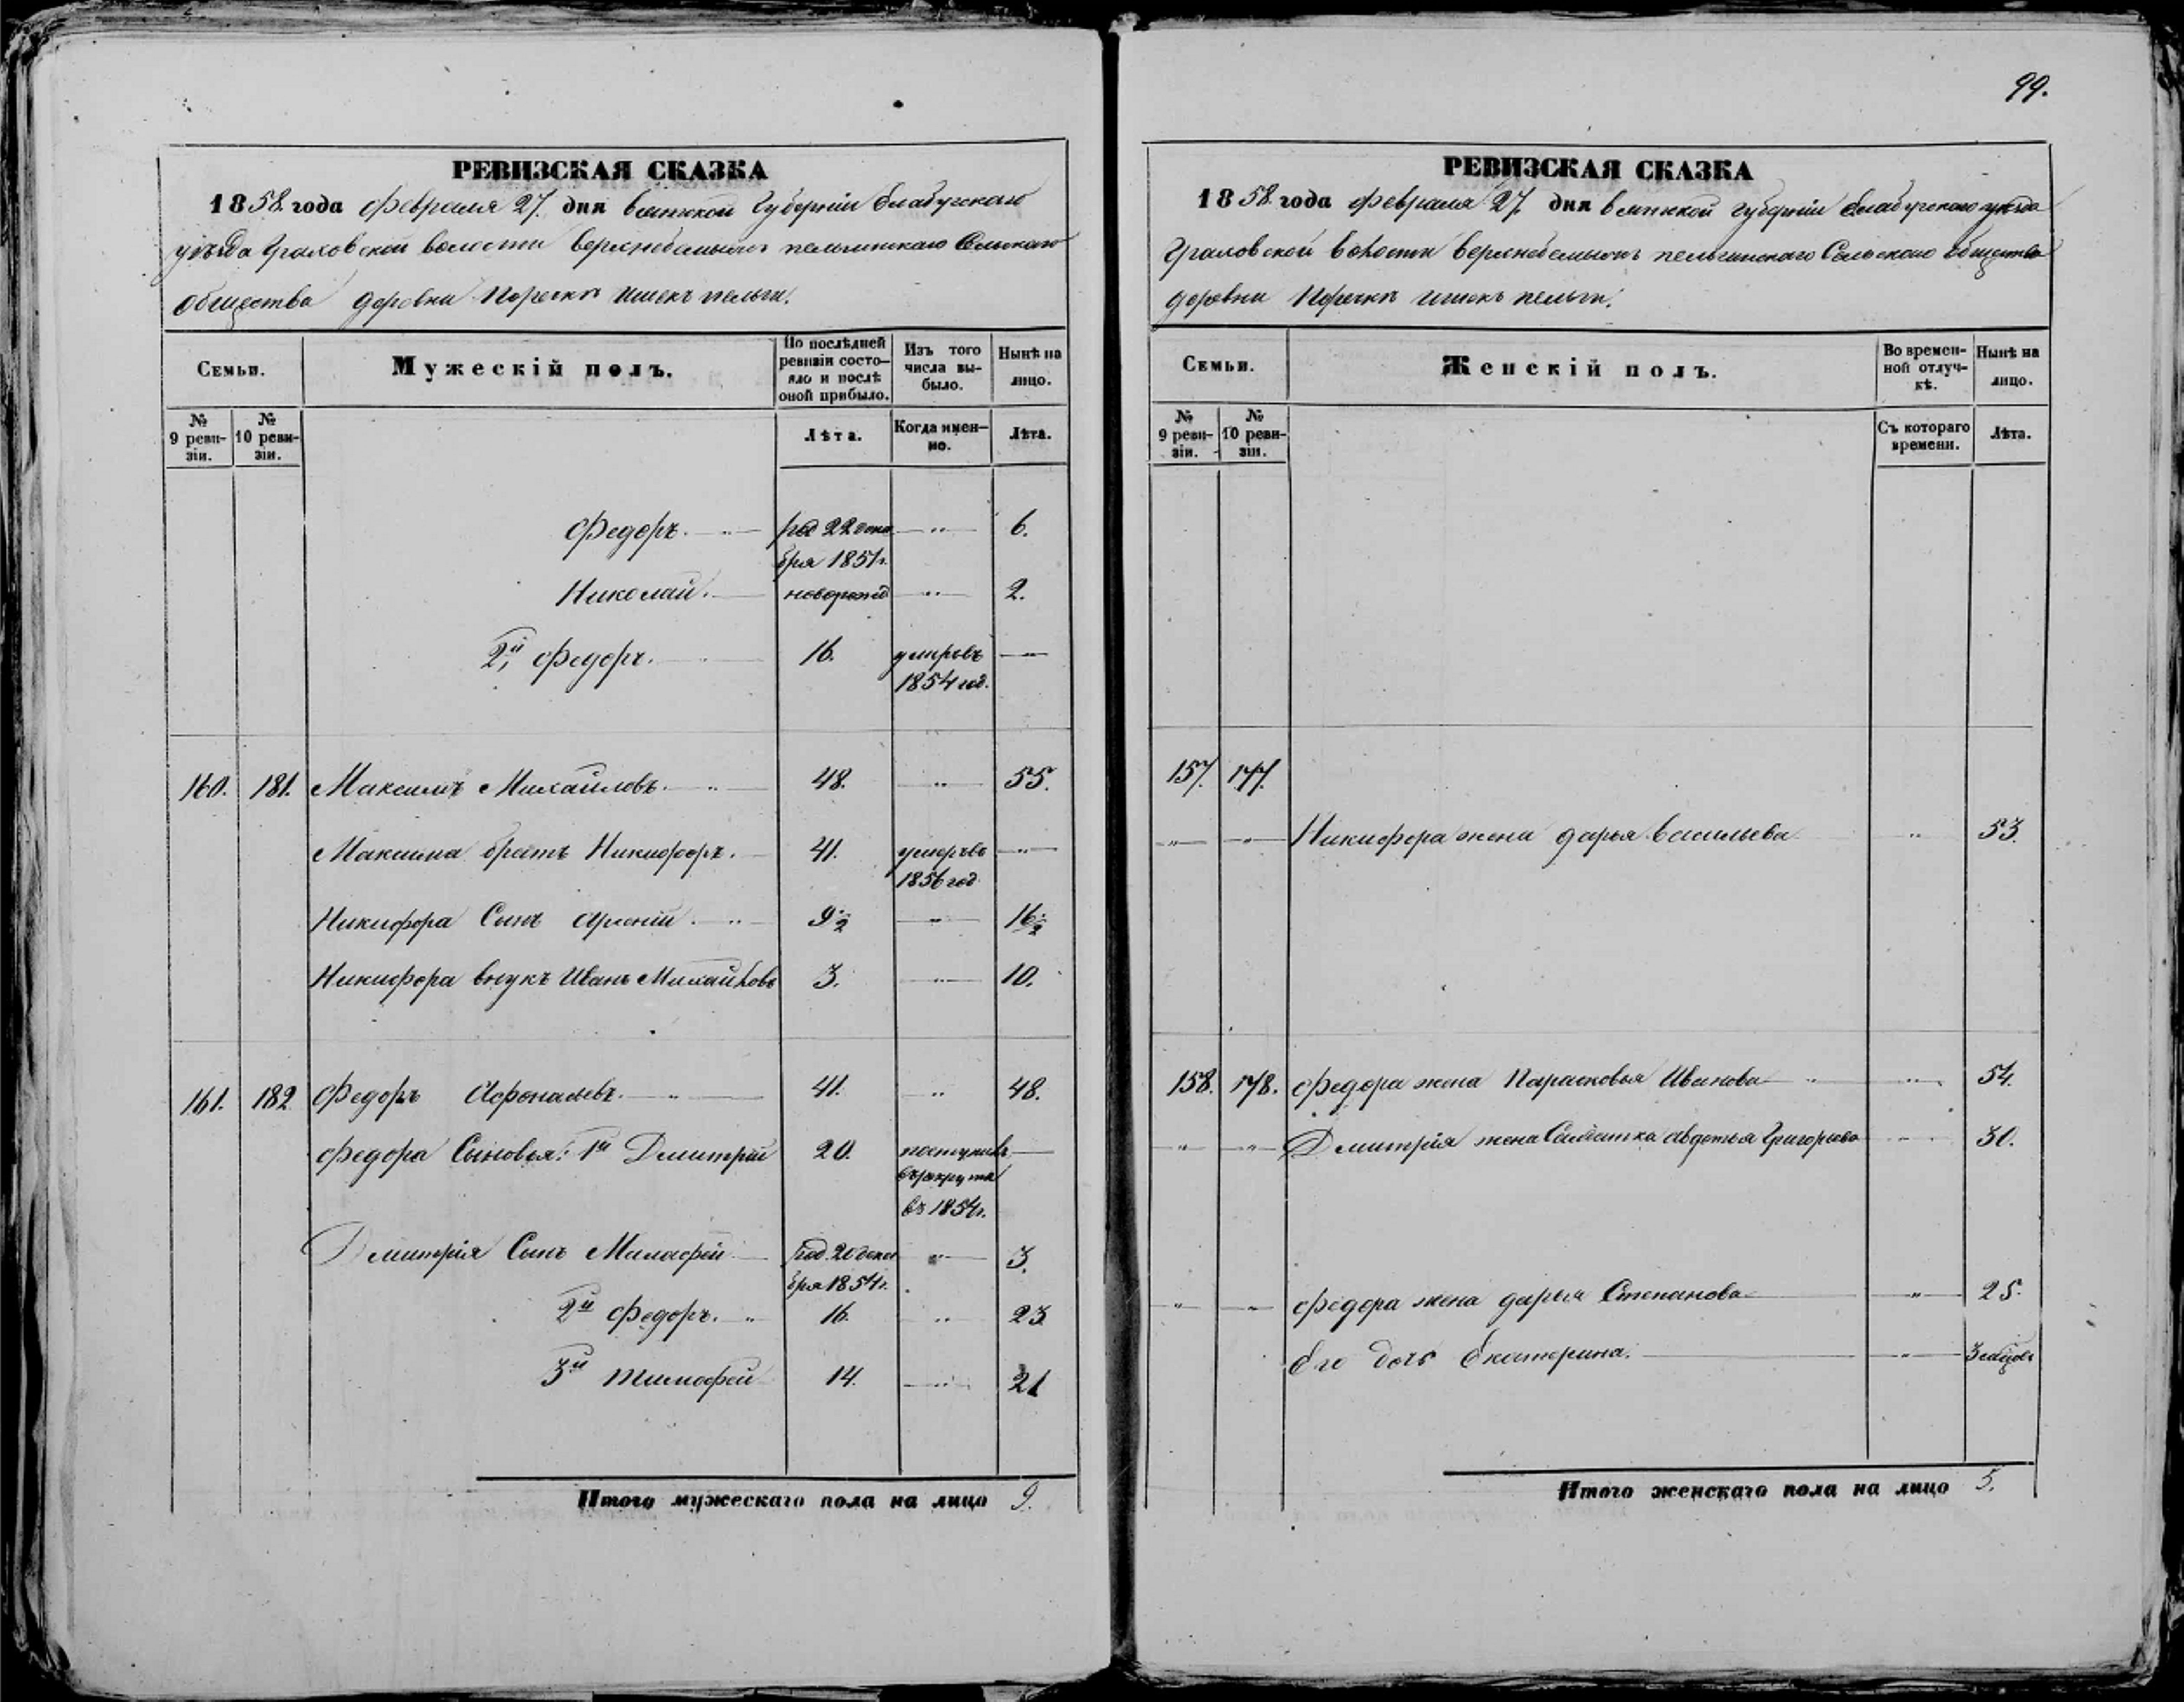 РЕВИЗСКАЯ СКАЗКА
1858 года Февраля 27. дня Вятской Губерніи Елабугскаго
уѣзда Граховской волости Пельгинскаго Сельскаго
общества деревни Поречки Ишекъ пельги.
Семьи.
Мужескій полъ.
По послѣдней ревизіи состо-
яло и послѣ
оной прибыло.
Изъ того
числа вы-
было.
Нынѣ на
лицо.
№
9 реви-
зіи.
№
10 реви-
зіи.
Лѣта.
Когда имен-
но.
Лѣта.
Федоръ. род 22 дека 6.
бря 1851 г.
Николай. новорожд 2.
2й Федоръ. 16. умръвъ
1854 год.
160. 181. Максимъ Михайловъ. 48. 55.
Максима братъ Никифоръ. 41. умеръвъ
1856 год
Никифора Сынъ Арсеній. 9½ 16½
Никифора внукъ Иванъ Михайловъ 3. 10.
161. 182 Федоръ Афонасьевъ. 41. 48.
Федора Сыновья: 1й Дмитрій 20. поступилъ
въ рекрута
въ 1854 г.
Дмитрія Сынъ род. 20 дека 3.
бря 1854 г.
2й Федоръ. 16. 23
3й Тимофей 14. 21
Итого мужескаго пола на лицо 9.
99.
РЕВИЗСКАЯ СКАЗКА
1858 года Февраля 27. дня Вятской Губерніи Елабугскаго уѣзда
Граховской Волости Пельгинскаго Сельскаго общества
деревни Поречки Ишекъ пельги.
Семьи.
Женскій полъ.
Во времен-
ной отлуч-
кѣ.
Нынѣ на
лицо.
№
9 реви-
зіи.
№
10 реви-
зіи.
Съ котораго
времени.
Лѣта.
157. 177.
Никифора жена дарья Васильева 53.
158. 178. Федора жена Парасковья Иванова 54.
Дмитрія жена Салдатка Авдотья Григорьева 30.
Федора жена дарья Степанова 25.
Его дочь Екатерина. 3 месяцовъ
Итого женскаго пола на лицо 5.